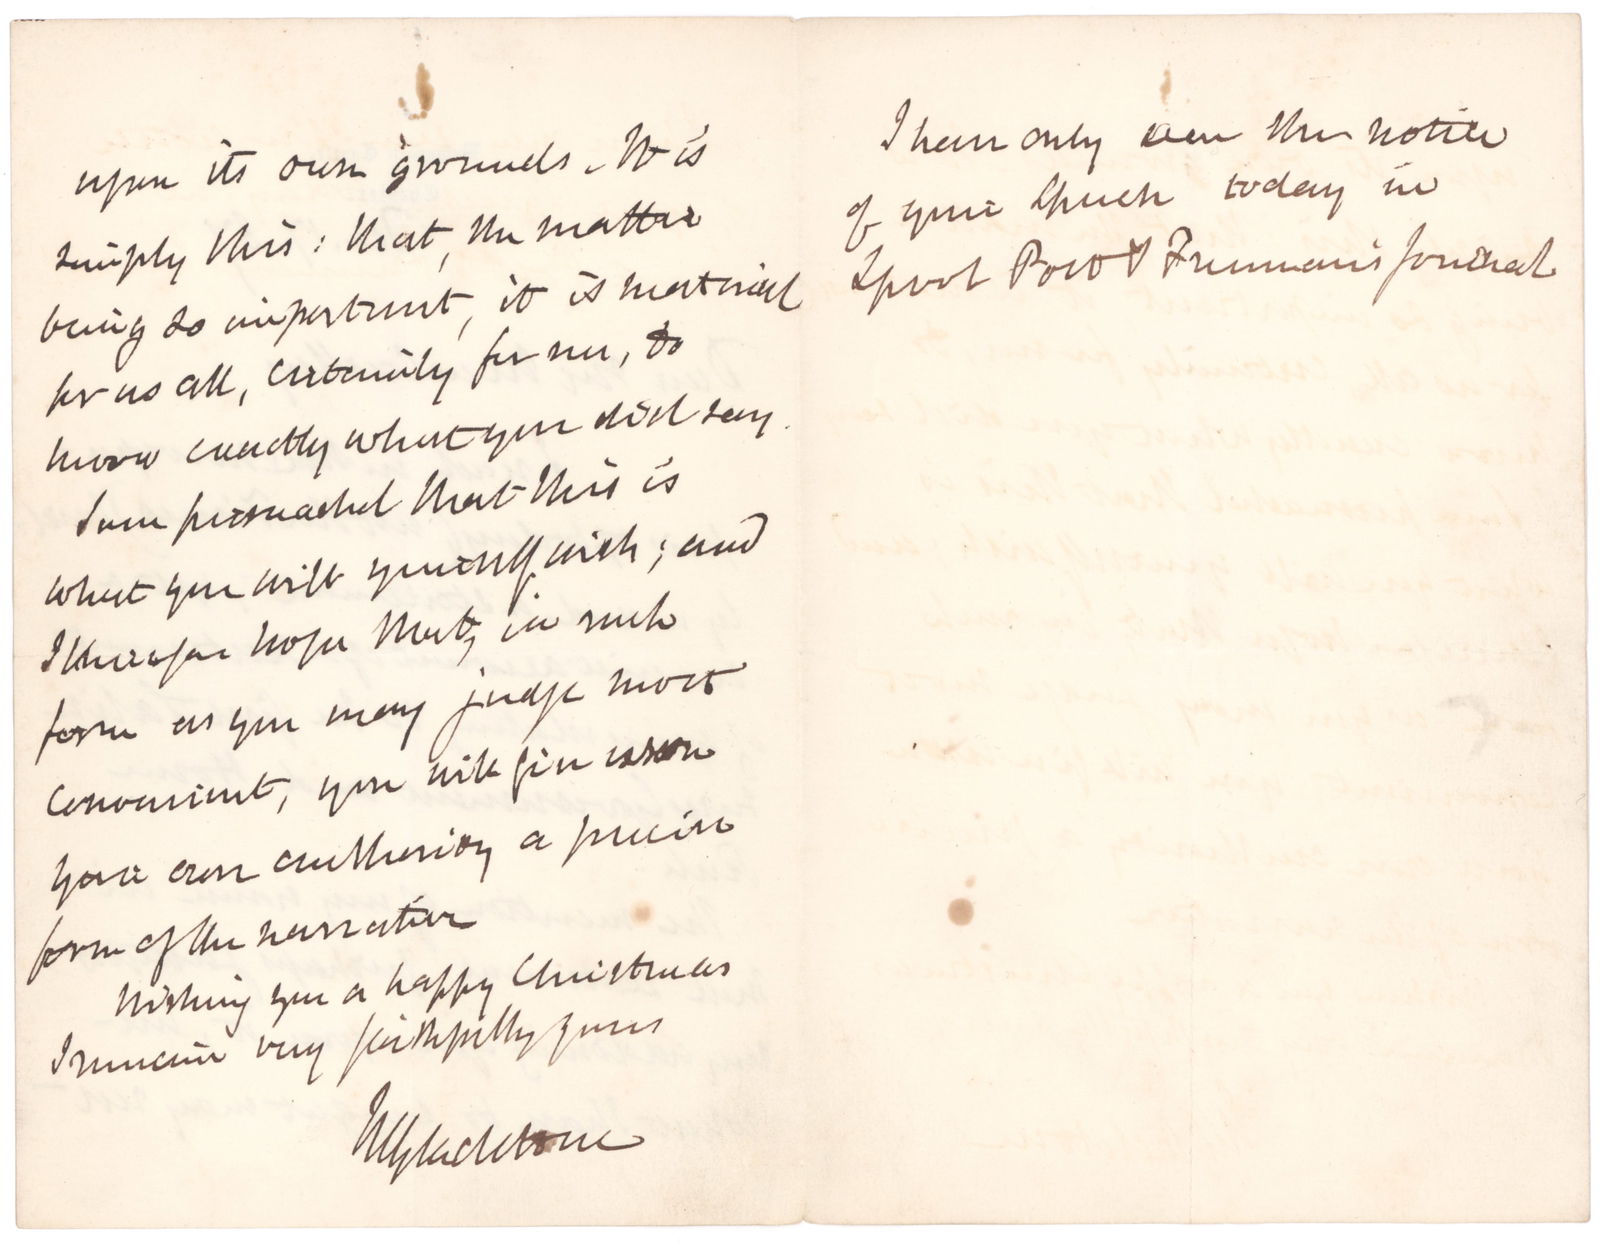 upon its own grounds. It is
simply this: that, the matter
being so important, it is material
for us all, certainly for me, to
know exactly what you did say.
I am persuaded that this is
what you will yourself wish; and
I therefore hope that, in such
form as you may judge most
convenient, you will give us on
your own authority a precise
form of the narrative
Wishing you a happy Christmas
I remain very faithfully yours
WEGladstone
I have only seen the notice
of your speech today in
Lpool Post & Freeman's Journal